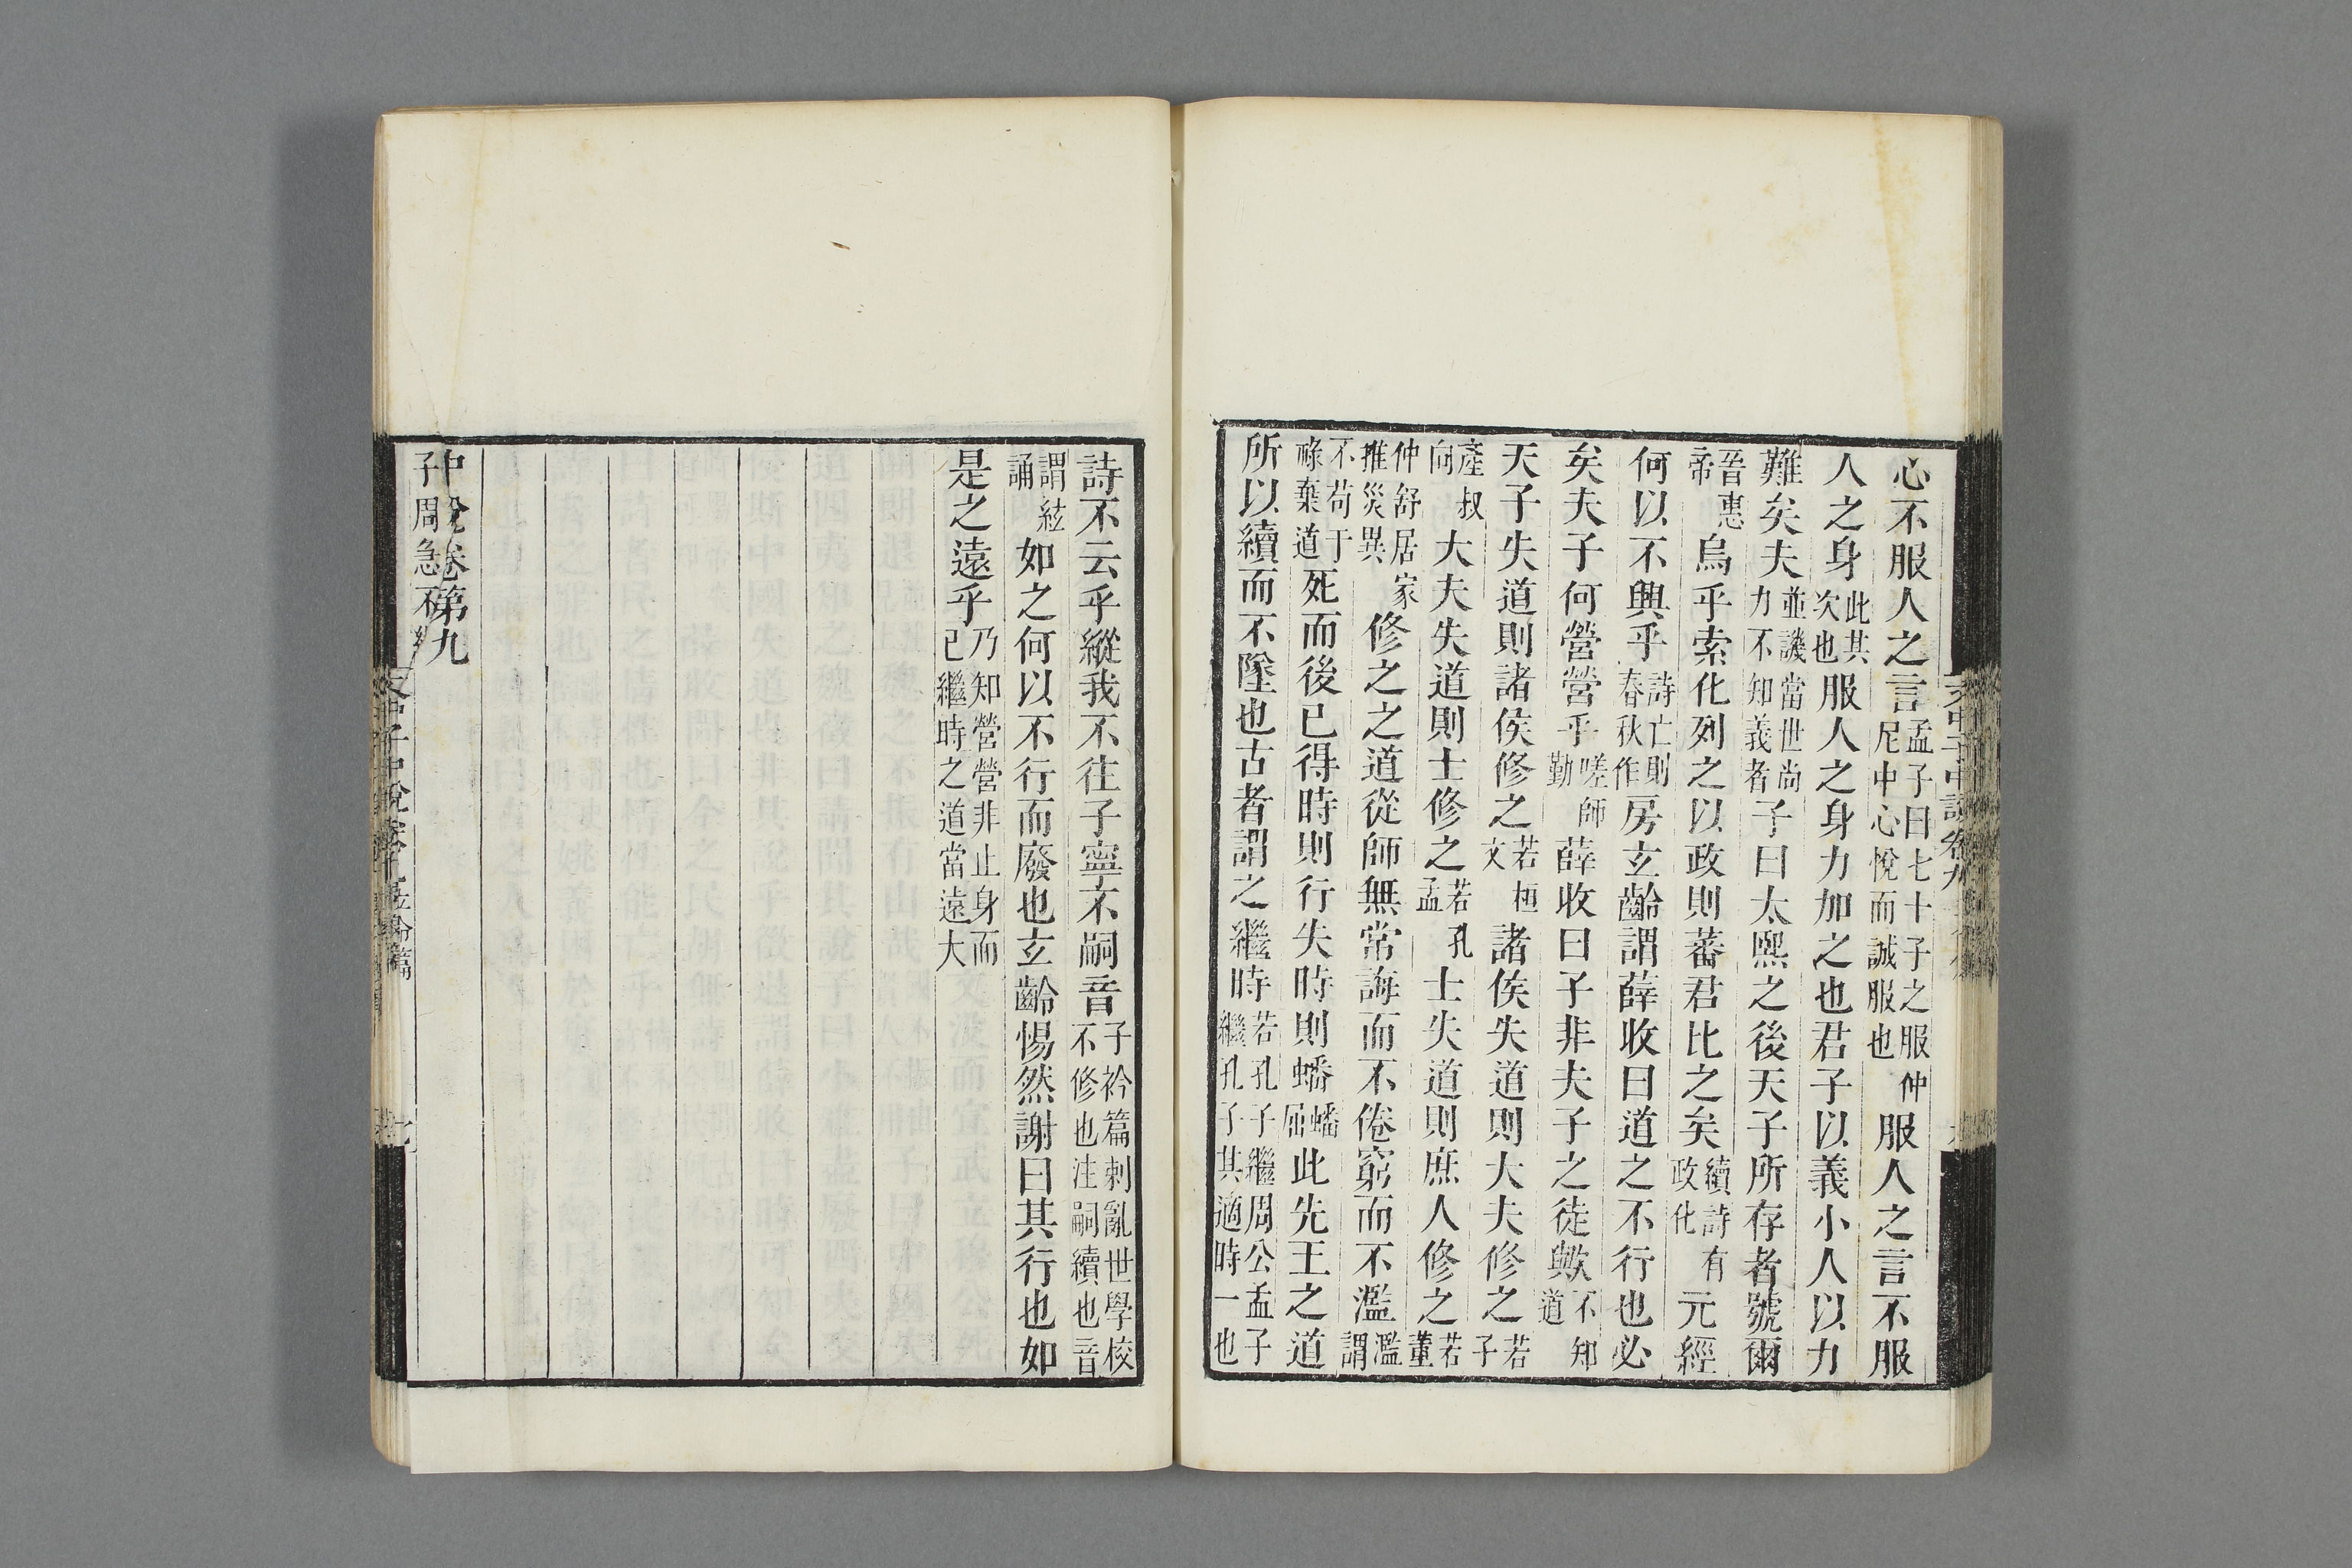 心不服人之言孟子曰七十子之服仲尼中心悅而誠服也服人之言不服
人之身此其次也服人之身力加之也君子以義小人以力
難矣夫並譏當世尚力不知義者子曰太熙之後天子所存者號爾
晉惠帝烏乎索化列之以政則蕃君比之矣續詩有政化元經
何以不興乎詩亡則春秋作房玄齡謂薛收曰道之不行也必
矣夫子何營營乎嗟師勤薛收曰子非夫子之徒歟不知道
天子失道則諸侯修之若桓文諸侯失道則大夫修之若子
產叔向大夫失道則士修之若孔孟士失道則庶人修之若董
仲舒居家推災異修之之道從師無常誨而不倦窮而不濫濫謂
不苟于祿棄道死而後已得時則行失時則蟠蟠屈此先王之道
所以續而不墜也古者謂之繼時若孔子繼周公孟子繼孔子其適時一也
詩不云乎縱我不往子寧不嗣音子衿篇刺亂世學校不修也注嗣續也音
謂絃誦如之何以不行而廢也玄齡惕然謝曰其行也如
是之遠乎乃知營營非止身而已繼時之道當遠大
中說卷第九
子周急不